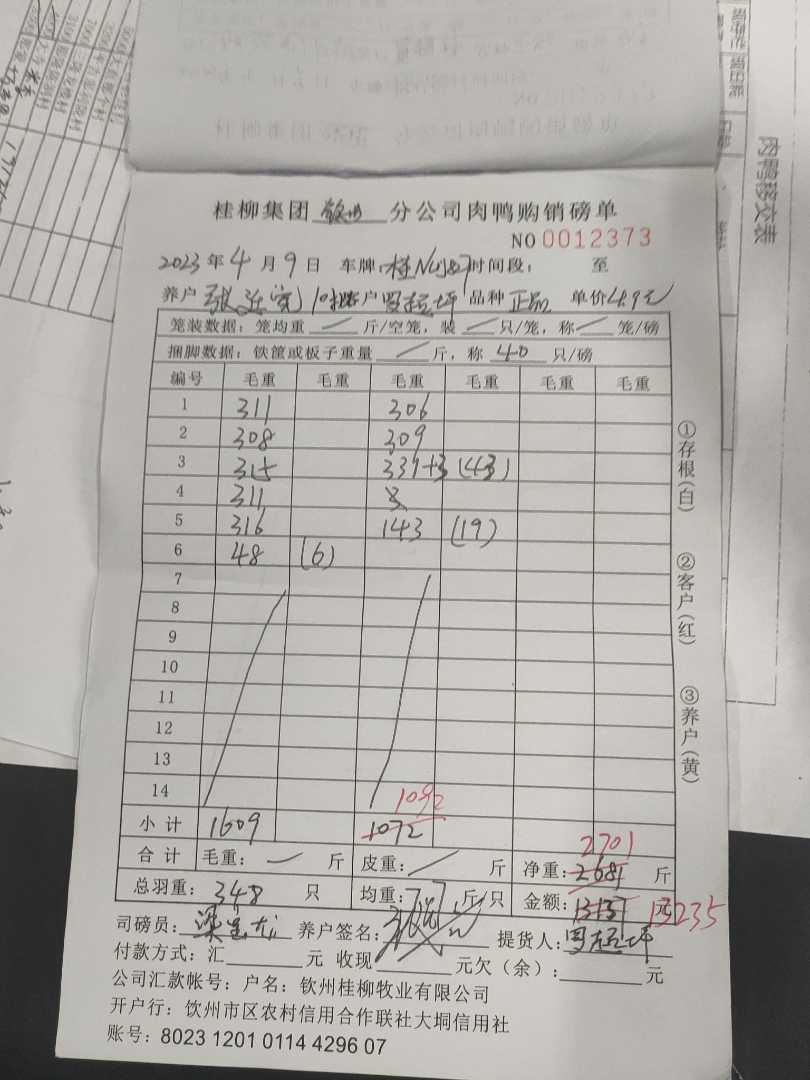 桂柳集团 钦州 分公司肉鸭购销磅单
NO 0012373
2023 年 4 月 9 日 车牌: 时间段: 至
养户 客户 罗超坪 品种 正品 单价 4.9元
笼装数据: 笼均重 / 斤/空笼, 装 / 只/笼, 称 / 笼/磅
捆脚数据: 铁筐或板子重量 / 斤, 称 40 只/磅
编号 毛重 毛重 毛重 毛重 毛重 毛重
1 311 306
2 308 309
3 315 331+3 (43)
4 311
5 316 143 (19)
6 48 (6)
7
8
9
10
11
12
13
14
1092
小计 1609 1072
2701
合计 毛重: / 斤 皮重: / 斤 净重: 2681 斤
总羽重: 348 只 均重: 斤/只 金额: 13137 元 13235
司磅员: 养户签名: 提货人: 罗超坪
付款方式: 汇 元 收现 元欠(余): 元
公司汇款帐号: 户名: 钦州桂柳牧业有限公司
开户行: 钦州市区农村信用合作联社大垌信用社
账号: 8023 1201 0114 4296 07
①存根(白)
②客户(红)
③养户(黄)
肉鸭移交表